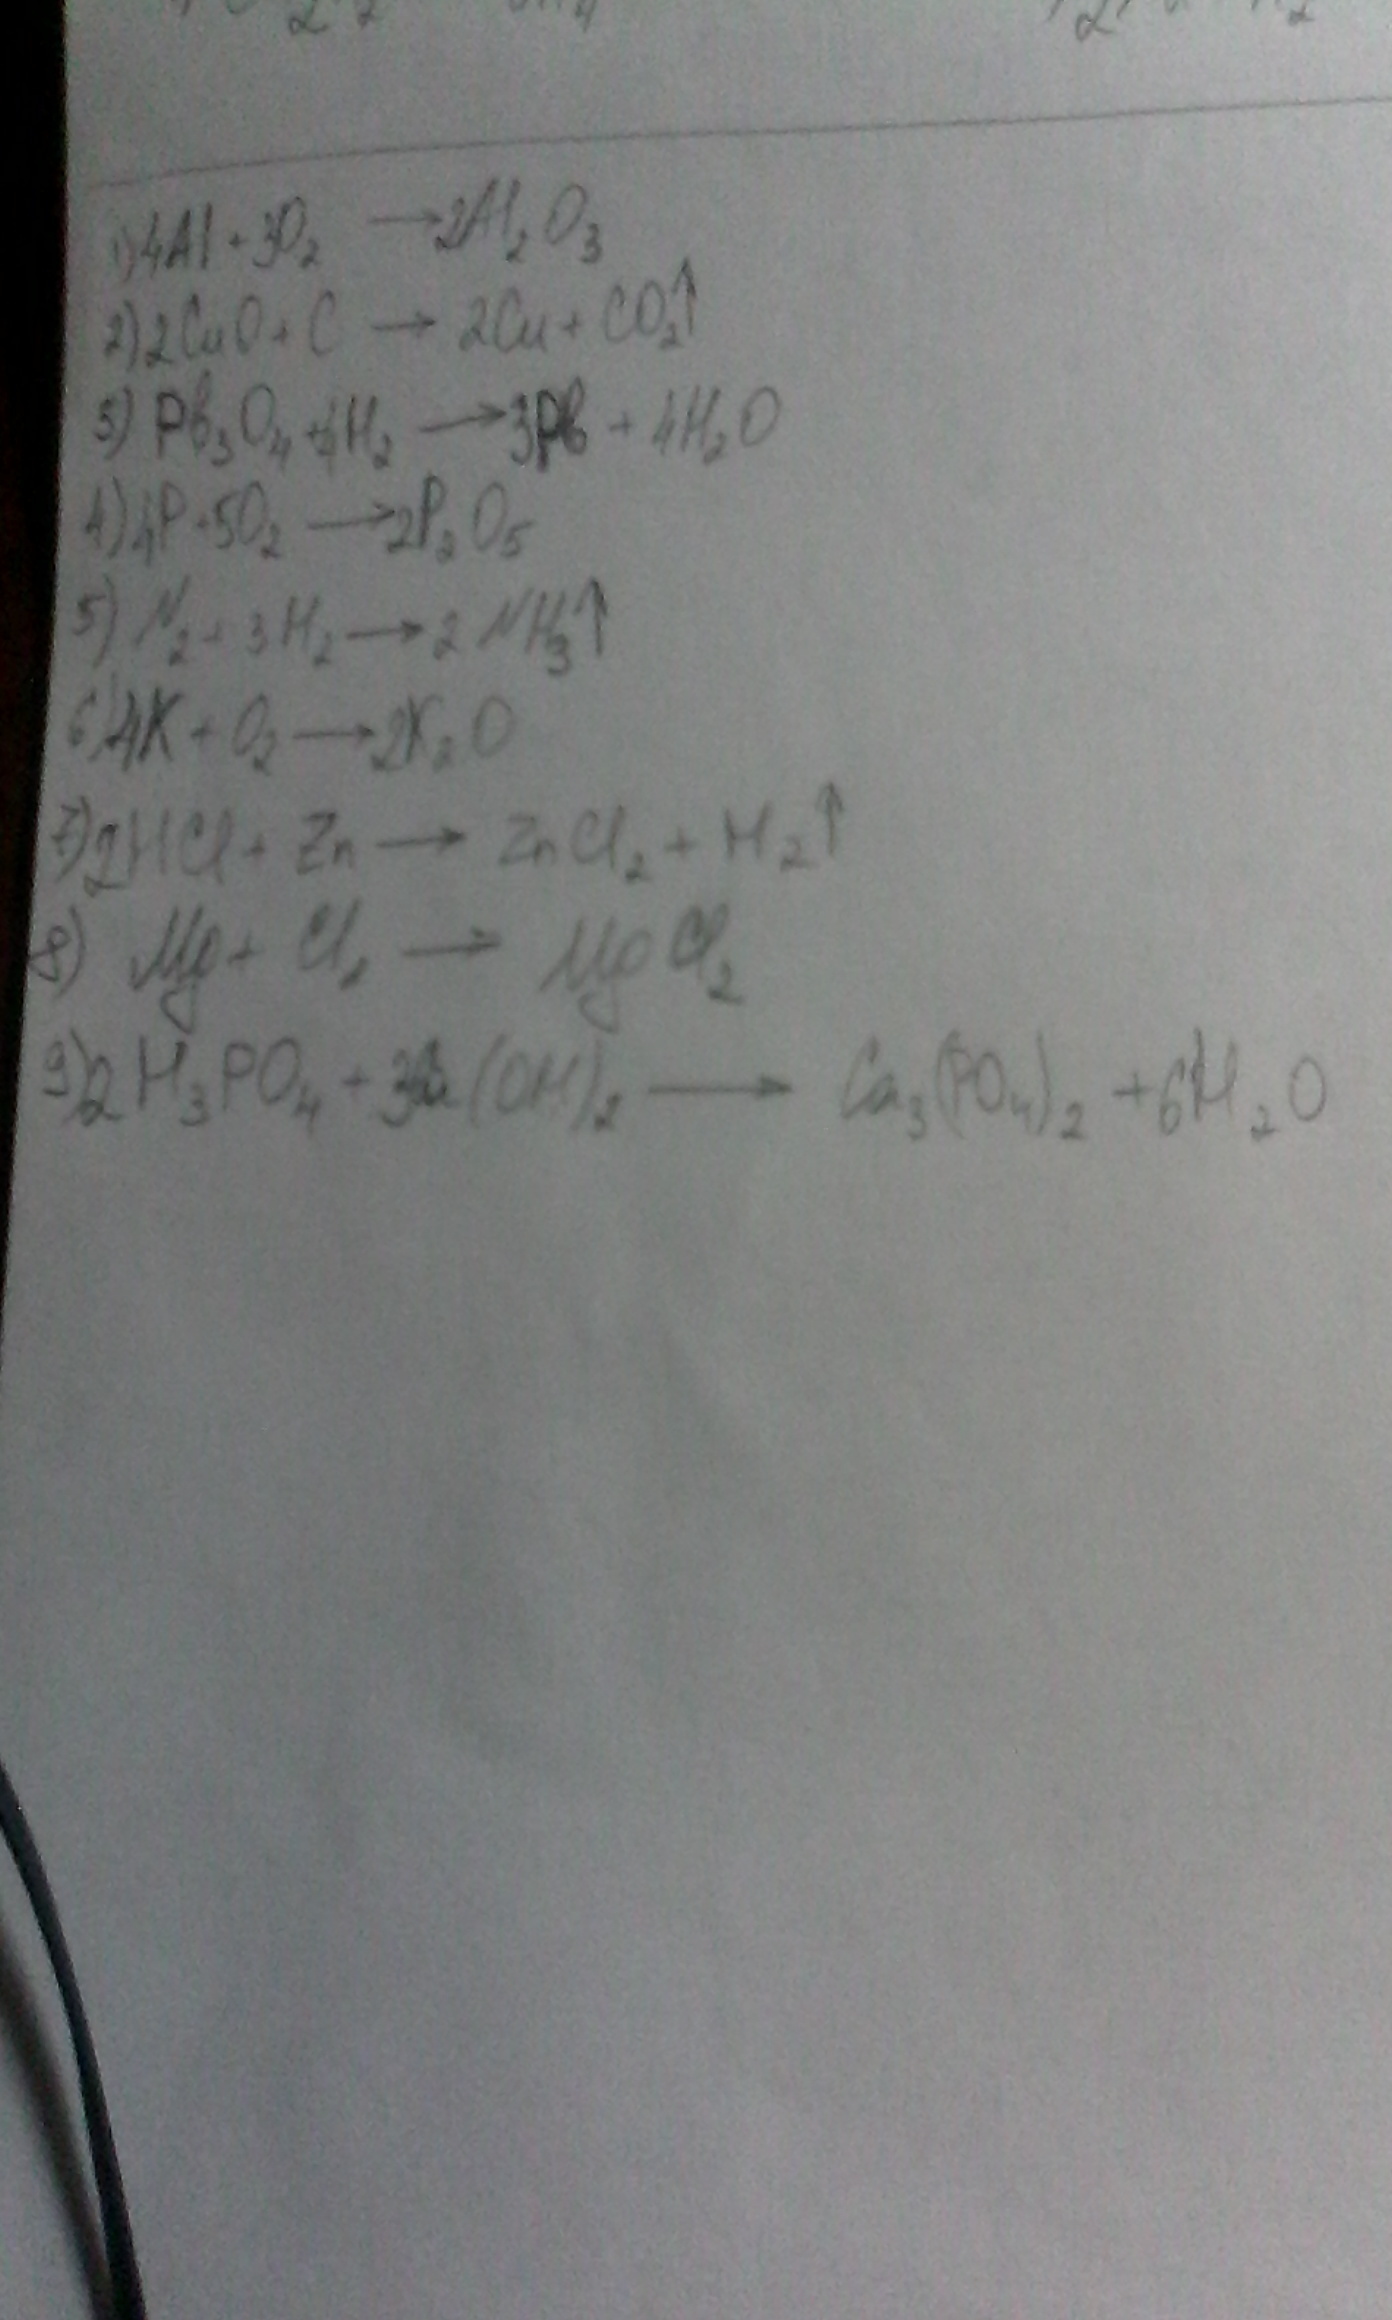 1) 4Al + 3O₂ → 2Al₂O₃
2) 2CuO + C → 2Cu + CO₂↑
3) Pb₃O₄ + 4H₂ → 3Pb + 4H₂O
4) 4P + 5O₂ → 2P₂O₅
5) N₂ + 3H₂ → 2NH₃↑
6) 4K + O₂ → 2K₂O
7) 2HCl + Zn → ZnCl₂ + H₂↑
8) Mg + Cl₂ → MgCl₂
9) 2H₃PO₄ + 3Ca(OH)₂ → Ca₃(PO₄)₂ + 6H₂O